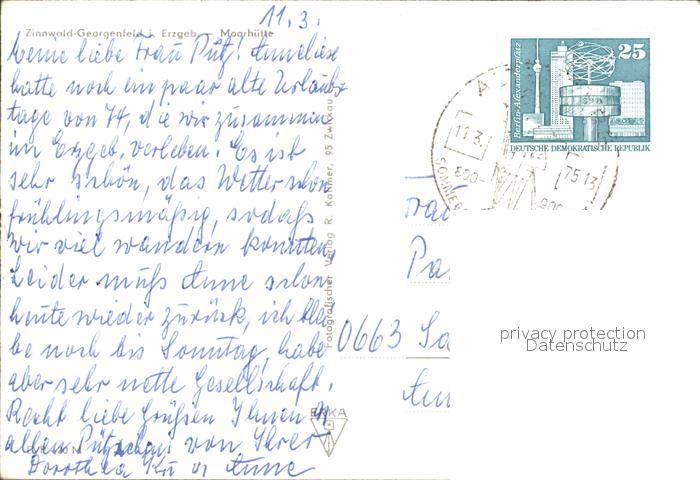 11.3.
Zinnwald-Georgenfeld i. Erzgeb. - Moorhütte
Meine liebe Frau Pütz! Anneliese
hatte noch ein paar alte Urlaubs-
tage von 74, die wir zusammen
im Erzgeb. verleben. Es ist
sehr schön, das Wetter schon
frühlingsmäßig, sodaß
wir viel wandern konnten.
Leider muß Anne schon
heute wieder zurück, ich blei-
be noch bis Sonntag, habe
aber sehr nette Gesellschaft.
Recht liebe Grüßen Ihnen u
allen von Ihrer
Dorothea u Anne
Fotografischer Verlag R. Kallmer, 95 Zwickau
ERKA
25
Berlin-Alexanderplatz
DEUTSCHE DEMOKRATISCHE REPUBLIK
A
11.3.
75.13
SOMMER
Frau
Pa
0663 Sa
privacy protection
Datenschutz